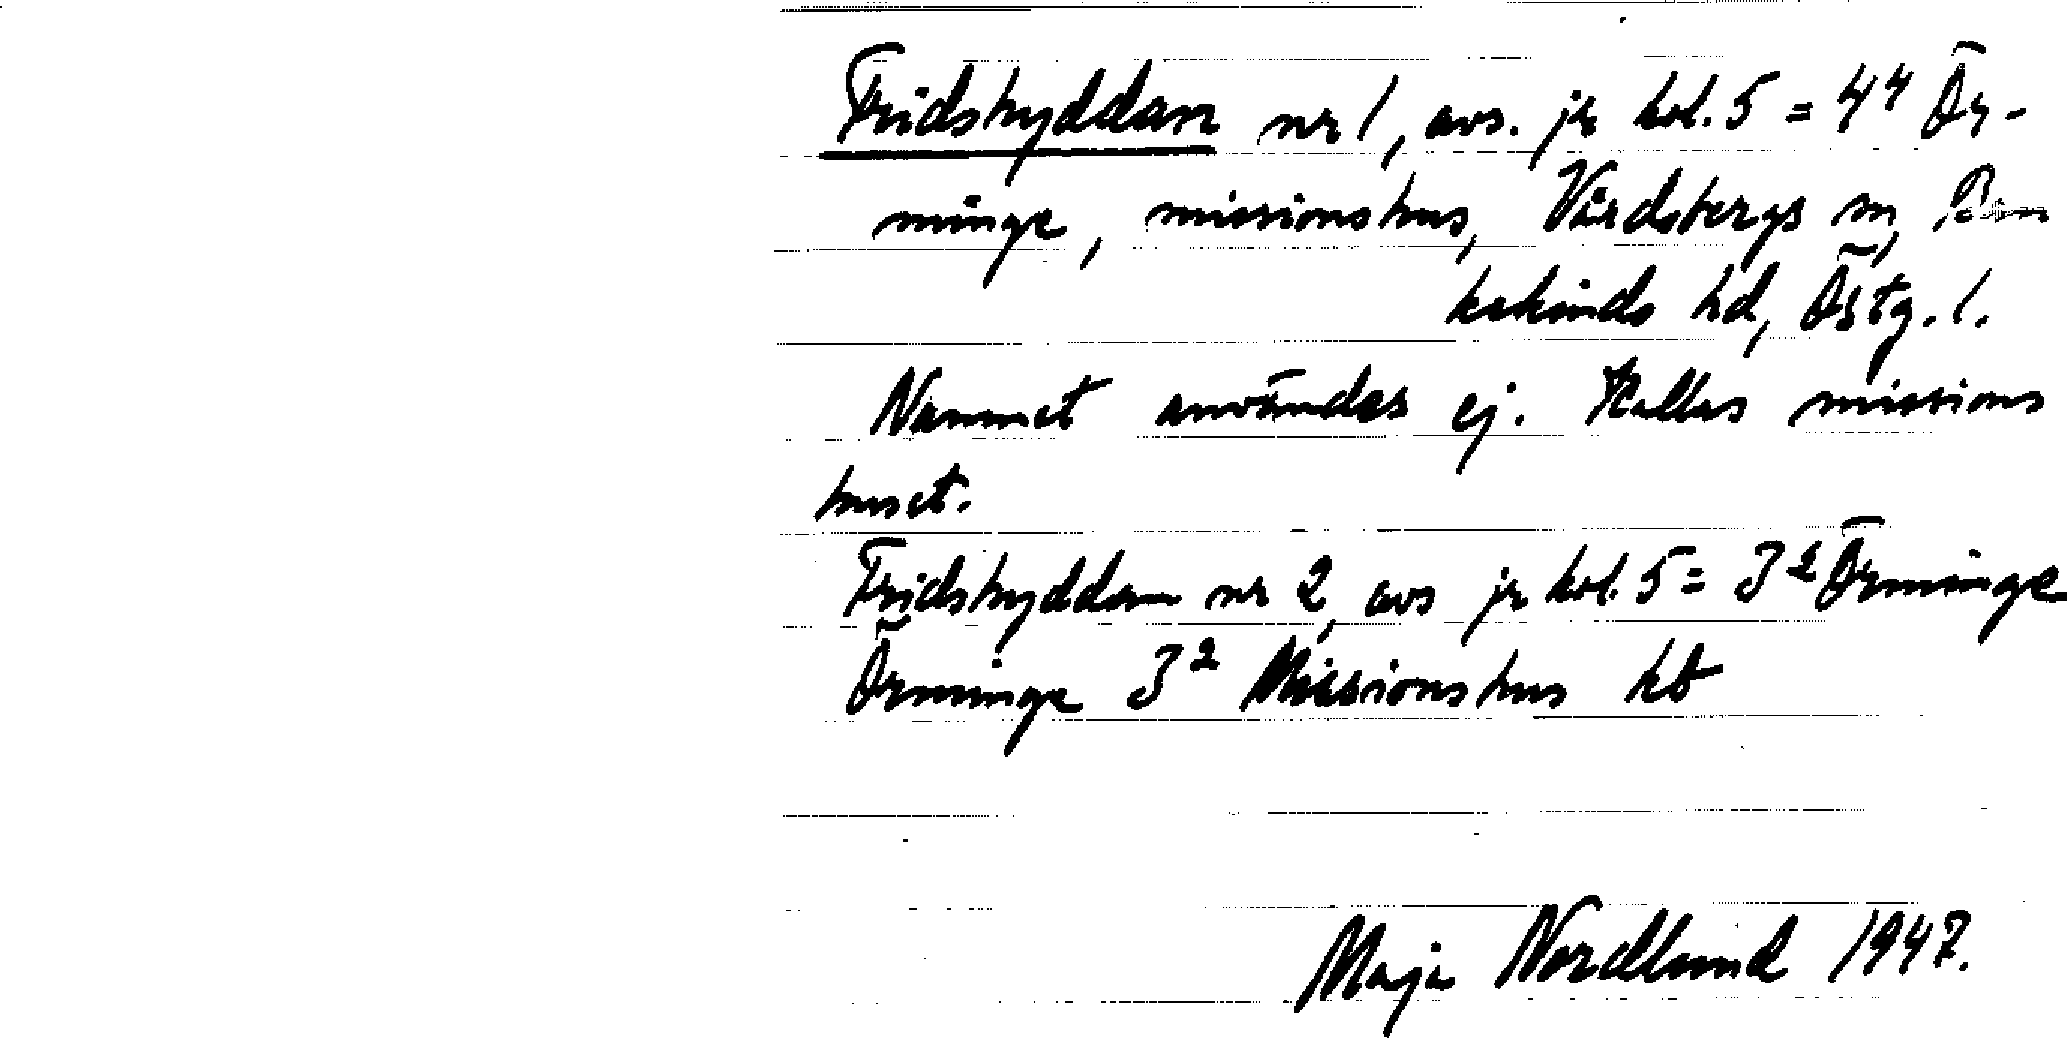 Fridshyddan nr 1, avs. jr kol. 5 = 4⁴ Ör-
minge, missionshus, Vårdsbergs sn, Ban
kekinds hd, Östg. l.
Namnet användes ej. Kallas missions
huset.
Fridshyddan nr 2, avs jr kol. 5 = 3² Örminge
Örminge 3² Missionshus kb
Maja Nordlund 1947.